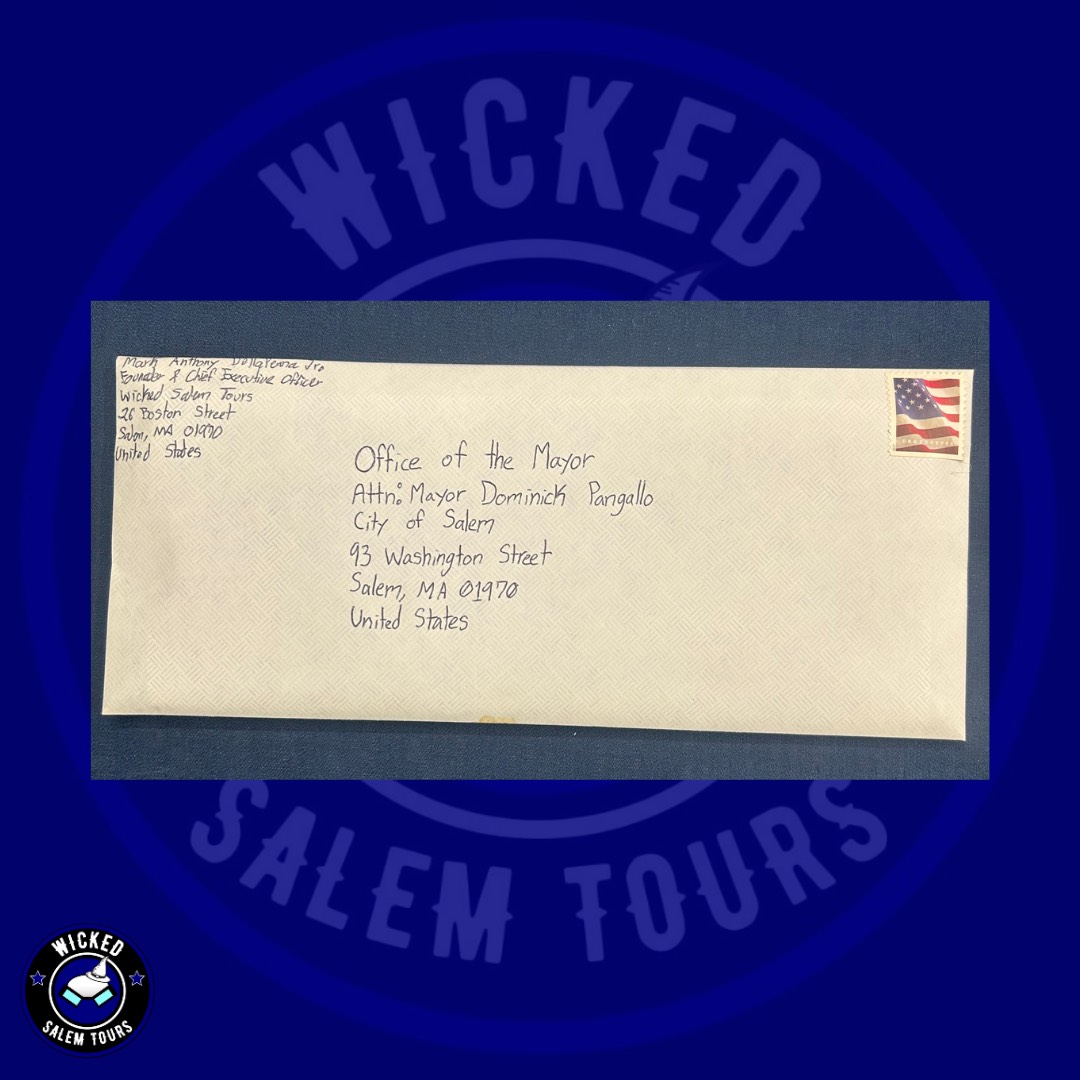 WICKED
Mark Anthony DellaPenna Jr.
Founder & Chief Executive Officer
Wicked Salem Tours
26 Boston Street
Salem, MA 01970
United States
Office of the Mayor
Attn: Mayor Dominick Pangallo
City of Salem
93 Washington Street
Salem, MA 01970
United States
SALEM TOURS
WICKED
SALEM TOURS